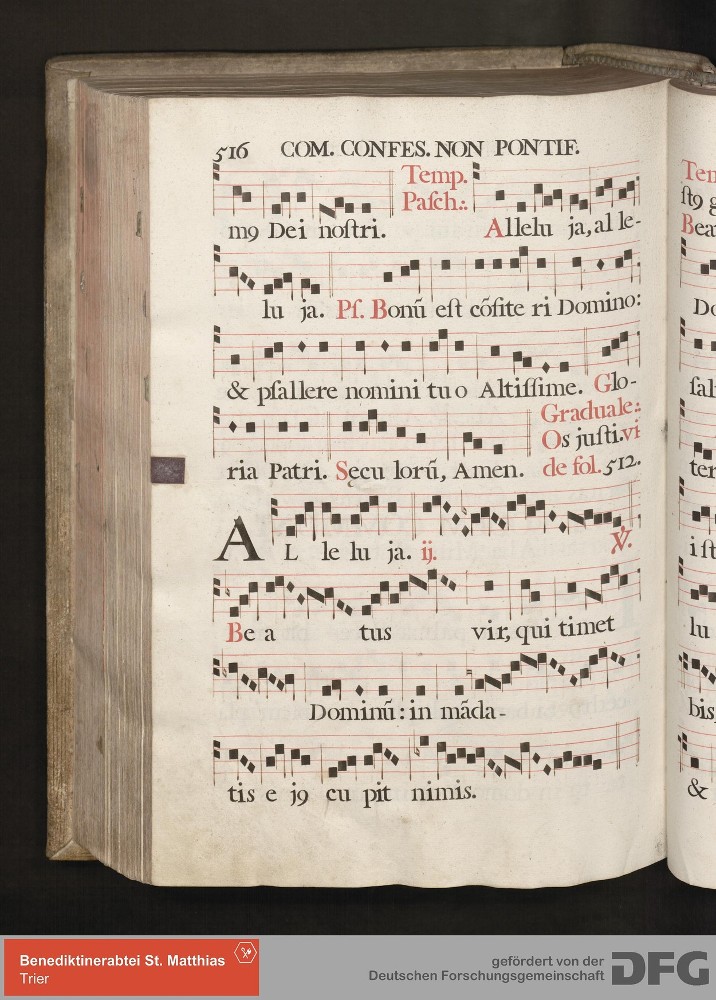 516 COM. CONFES. NON PONTIF.
Temp.
Paſch.:.
m9 Dei noſtri. Allelu ja, al le-
lu ja. Pſ. Bonũ eſt cõfite ri Domino:
& pſallere nomini tuo Altiſſime. Glo-
Graduale:.
Os juſti. vi
ria Patri. Secu lorũ, Amen. de fol. 512.
A L le lu ja. ij. ℣.
Be a tus vir, qui timet
Dominũ: in mãda-
tis e j9 cu pit nimis.
Tem
ſt9 g
Bea
Do
ſal
ter
i ſt
lu
bis,
&
Benediktinerabtei St. Matthias
Trier
gefördert von der
Deutschen Forschungsgemeinschaft
DFG